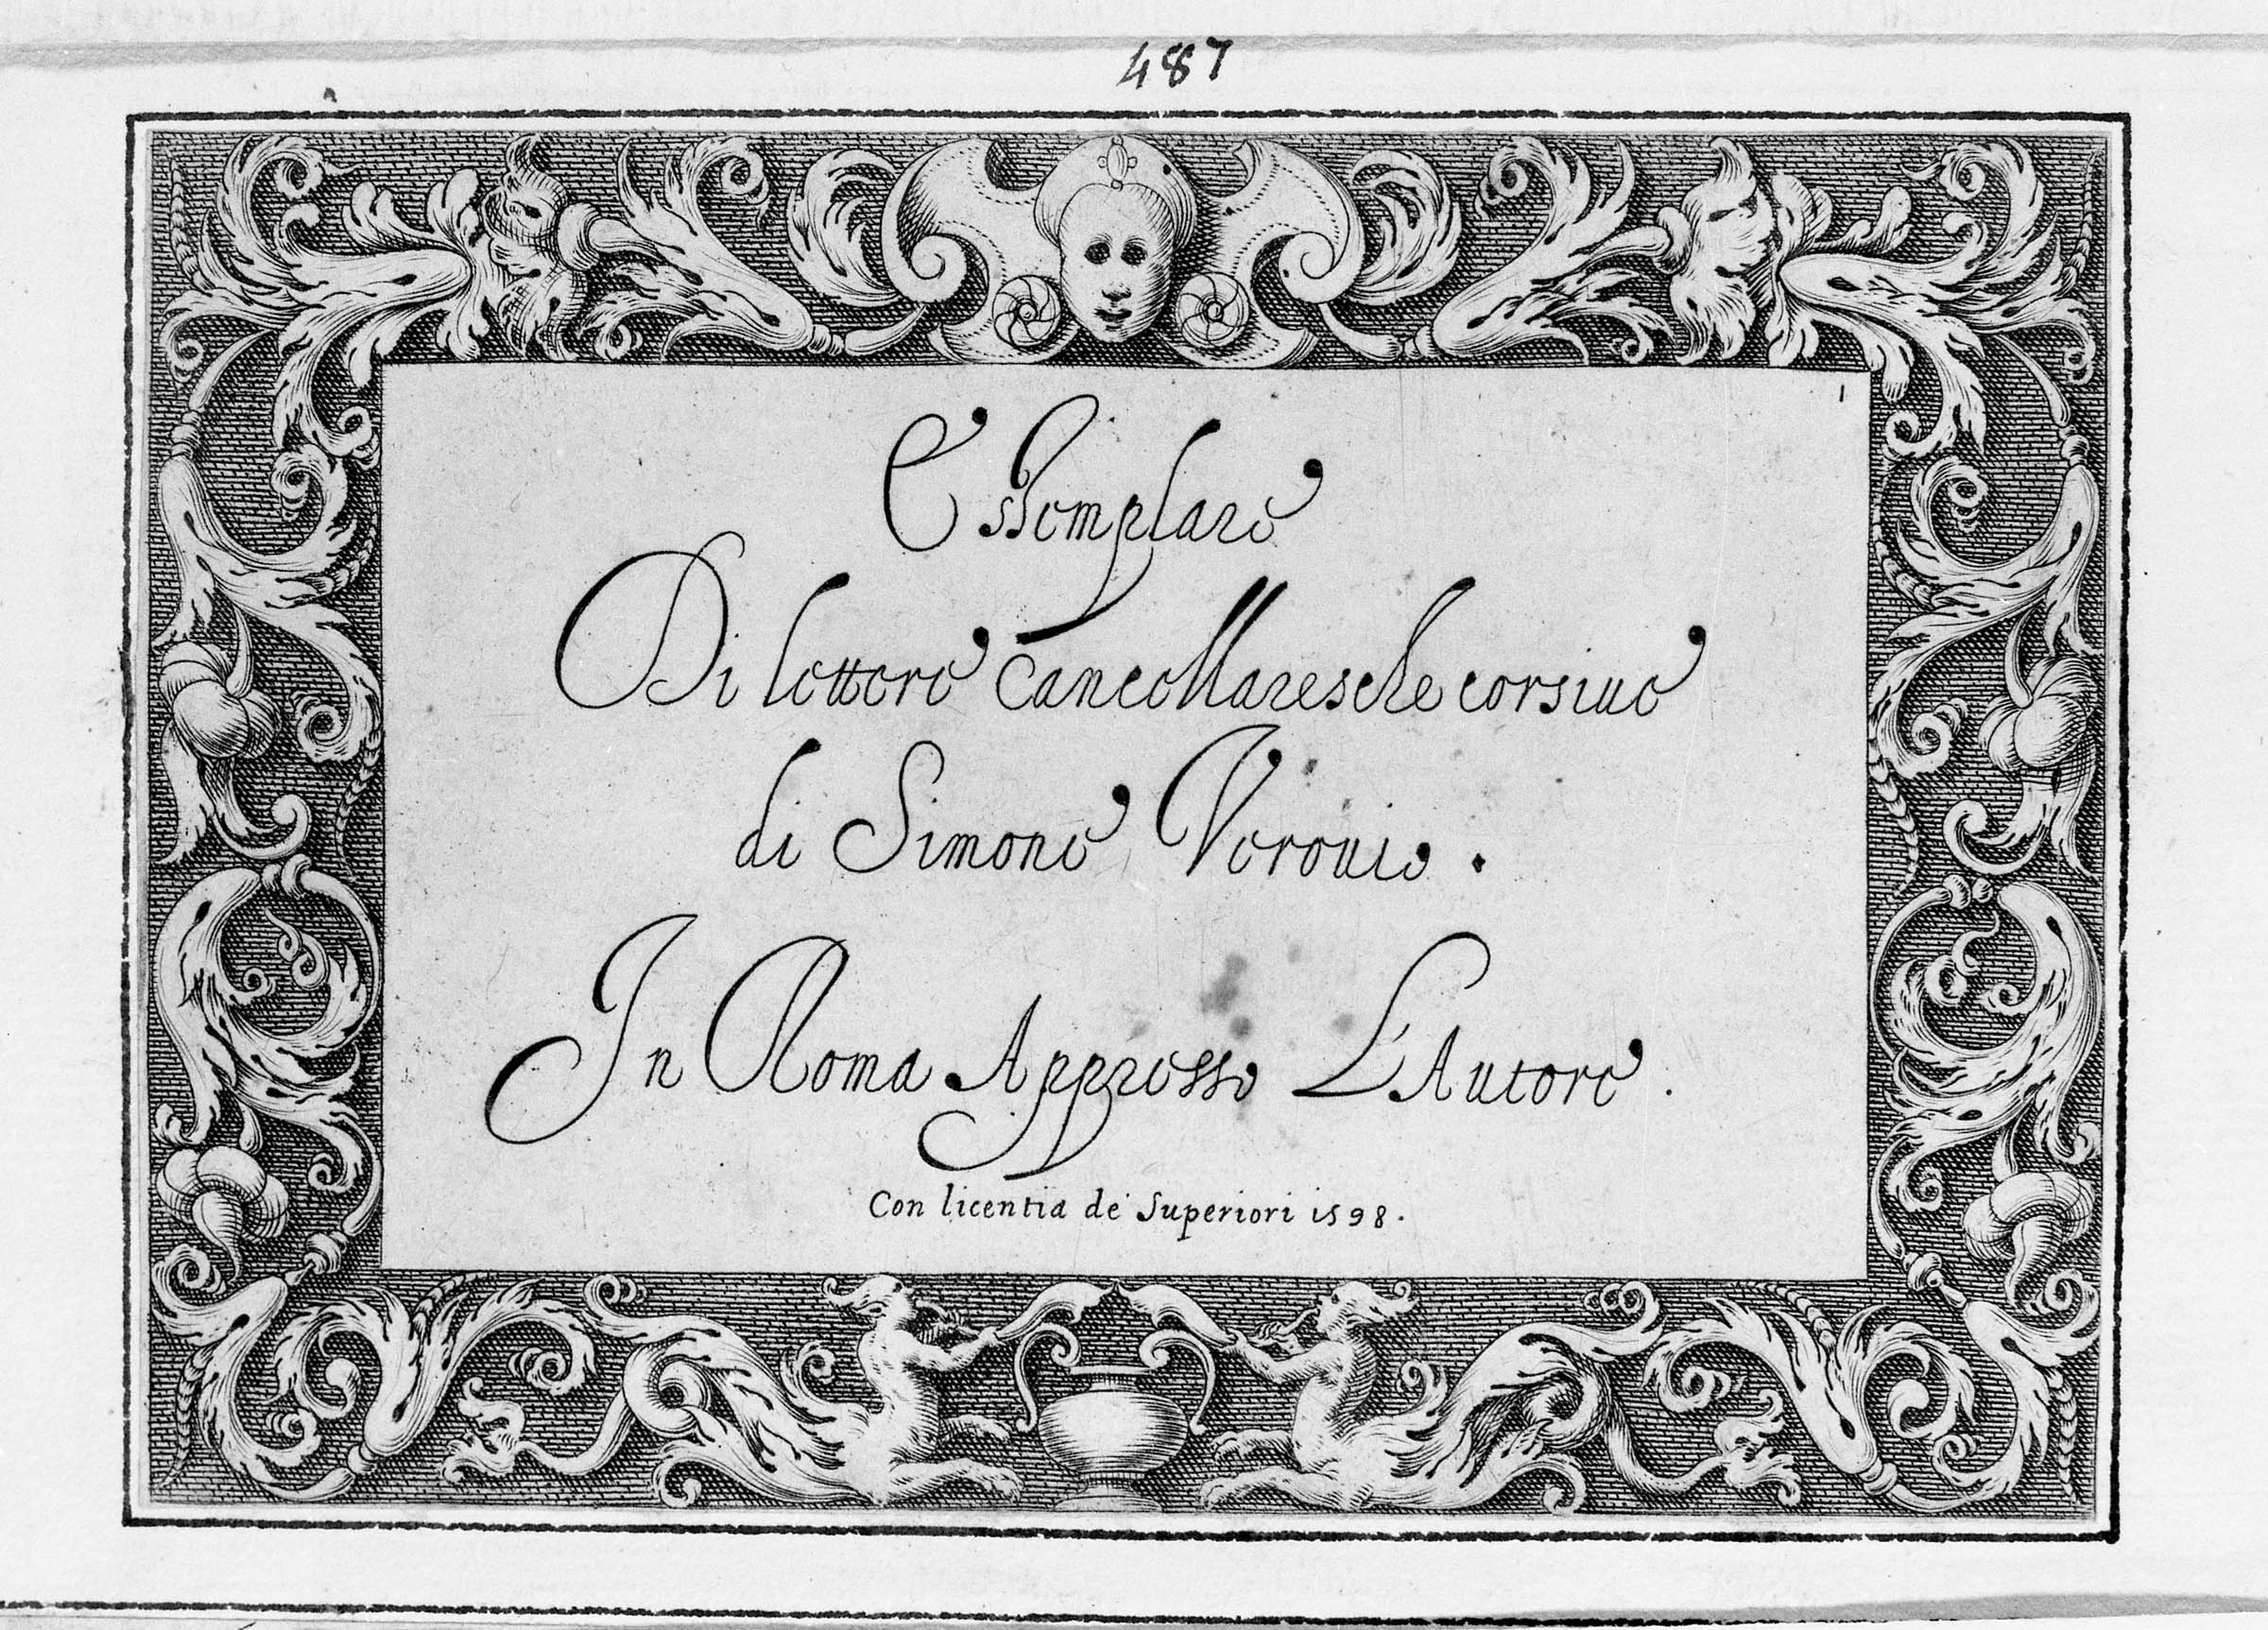 487
1
Essemplare
Di lettere Cancellaresche corsiue
di Simone Verouio.
In Roma Appresso L'Autore.
Con licentia de' Superiori 1598.